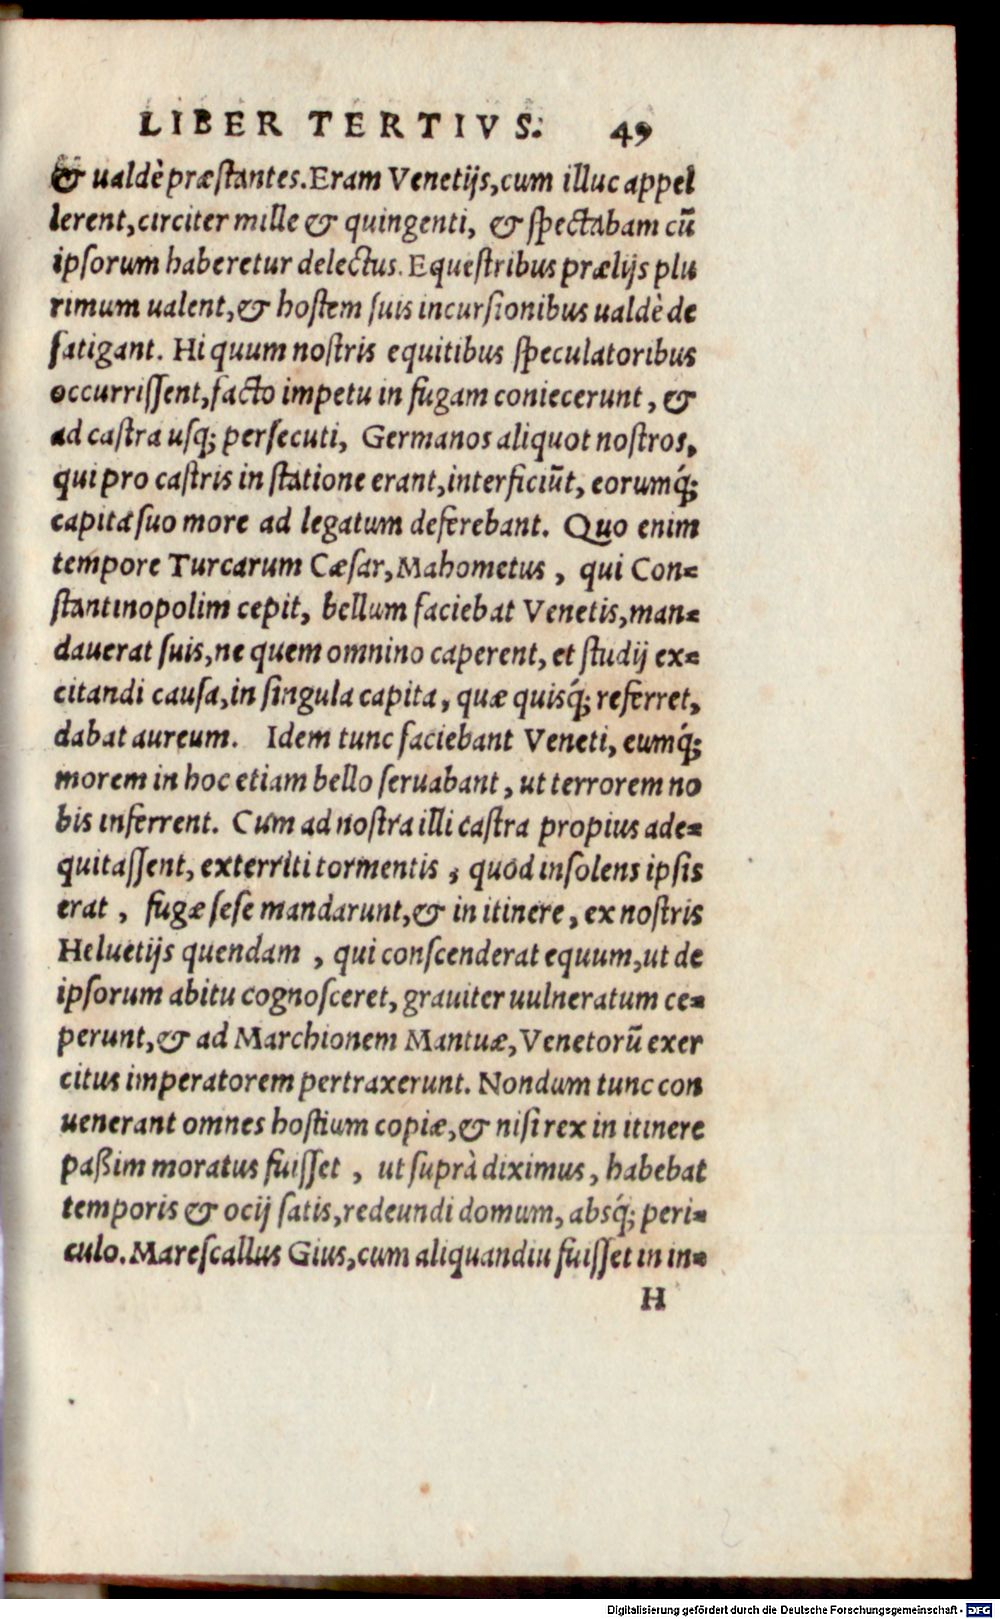 LIBER TERTIVS. 49
& ualdè præstantes. Eram Venetijs, cum illuc appel
lerent, circiter mille & quingenti, & spectabam cũ
ipsorum haberetur delectus. Equestribus prælijs plu
rimum ualent, & hostem suis incursionibus ualdè de
fatigant. Hi quum nostris equitibus speculatoribus
occurrissent, facto impetu in fugam coniecerunt, &
ad castra usq; persecuti, Germanos aliquot nostros,
qui pro castris in statione erant, interficiũt, eorumq́;
capita suo more ad legatum deferebant. Quo enim
tempore Turcarum Cæsar, Mahometus, qui Con-
stantinopolim cepit, bellum faciebat Venetis, man-
dauerat suis, ne quem omnino caperent, et studij ex-
citandi causa, in singula capita, quæ quisq́; referret,
dabat aureum. Idem tunc faciebant Veneti, eumq́;
morem in hoc etiam bello seruabant, ut terrorem no
bis inferrent. Cum ad nostra illi castra propius ade-
quitassent, exterriti tormentis, quòd insolens ipsis
erat, fugæ sese mandarunt, & in itinere, ex nostris
Heluetijs quendam, qui conscenderat equum, ut de
ipsorum abitu cognosceret, grauiter uulneratum ce-
perunt, & ad Marchionem Mantuæ, Venetorũ exer
citus imperatorem pertraxerunt. Nondum tunc con
uenerant omnes hostium copiæ, & nisi rex in itinere
paßim moratus fuisset, ut suprà diximus, habebat
temporis & ocij satis, redeundi domum, absq́; peri-
culo. Marescallus Gius, cum aliquandiu fuisset in in-
H
Digitalisierung gefördert durch die Deutsche Forschungsgemeinschaft - DFG